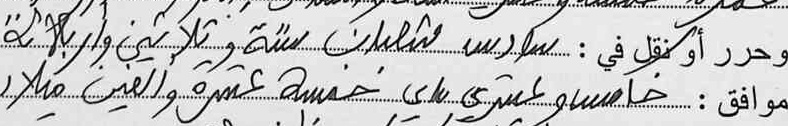 وحرر أو نقل في : سادس شعبان ستة وثلاثين وأربعمائة
موافق : خامس وعشري ماي خمسة عشرة وألفين ميلاد